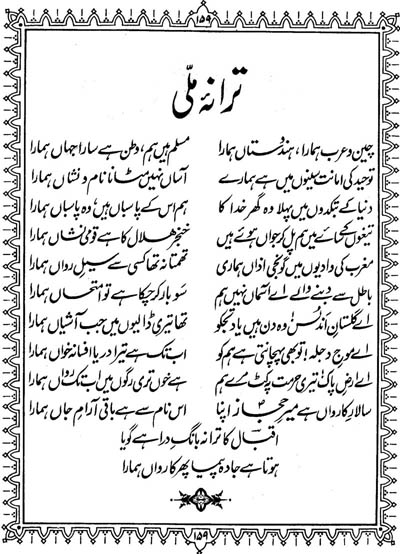 ۱۵۹
ترانۂ ملّی
چین و عرب ہمارا، ہندوستاں ہمارا مسلم ہیں ہم، وطن ہے سارا جہاں ہمارا
توحید کی امانت سینوں میں ہے ہمارے آساں نہیں مٹانا نام و نشاں ہمارا
دنیا کے بتکدوں میں پہلا وہ گھر خدا کا ہم اس کے پاسباں ہیں وہ پاسباں ہمارا
تیغوں کے سائے میں ہم پل کر جواں ہوئے ہیں خنجر ھلال کا ہے قومی نشاں ہمارا
مغرب کی وادیوں میں گونجی اذاں ہماری تھمتا نہ تھا کسی سے سیلِ رواں ہمارا
باطل سے دبنے والے اے آسماں نہیں ہم سو بار کر چکا ہے تو امتحاں ہمارا
اے گلستانِ اندلس! وہ دن ہیں یاد تجکو تھا تیری ڈالیوں میں جب آشیاں ہمارا
اے موجِ دجلہ! تو بھی پہچانتی ہے ہم کو اب تک ہے تیرا دریا افسانہ خواں ہمارا
اے ارضِ پاک! تیری حرمت پہ کٹ مرے ہم ہے خوں تری رگوں میں اب تک رواں ہمارا
سالارِ کارواں ہے میرِ حجازؐ اپنا اس نام سے ہے باقی آرامِ جاں ہمارا
اقبال کا ترانہ بانگِ درا ہے گویا
ہوتا ہے جادہ پیما پھر کارواں ہمارا
۱۵۹